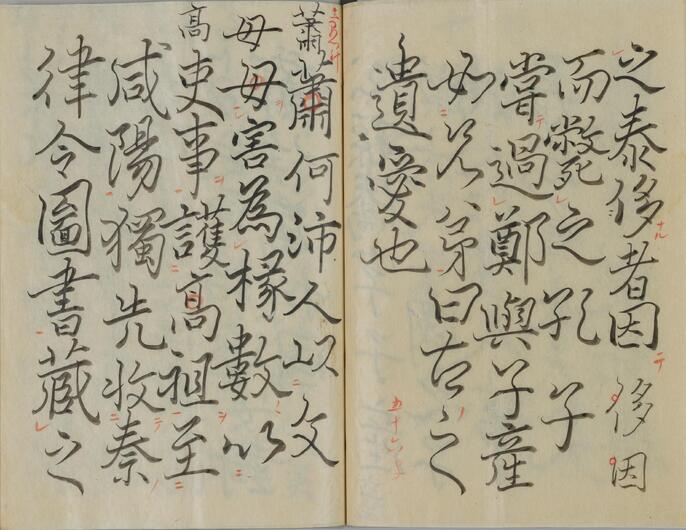 之泰侈者因 侈因
而救死之孔子
嘗過鄭與子產
如兄弟曰古之
遺愛也
蕭 蕭何沛人以文
毋 毋害為椽數以
高 吏事護高祖至
咸陽獨先收秦
律令圖書藏之